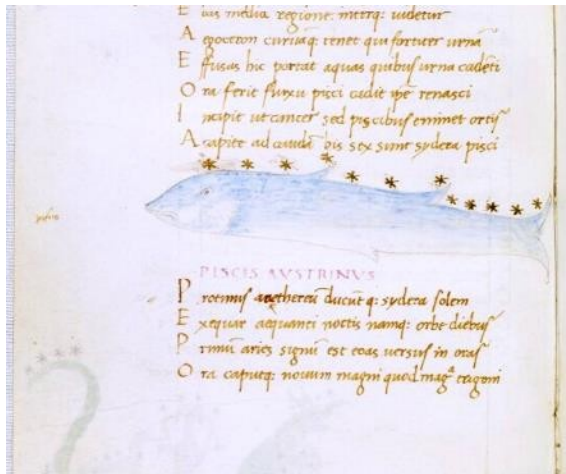 E ius media regione: interq: uidetur
A egoceron curuāq: tenet qui fortiter urnā
E ffusus hic portat aquas quibus urna cadēti
O ra ferit fluxu pisci cadit ipe renasci
I ncipit ut cancer sed piscibus eminet ortis
A capite ad caudā bis sex sunt sydera pisci
PISCIS AVSTRINVS
P rotinus ducūt q: sydera solem
E xequar aequanti noctis namq: orbe diebus
P rimū aries signū est eoas uersus in oras
O ra caputq: nouum magni quod trigoni